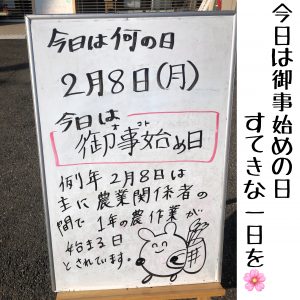 今日は御事始めの日
すてきな一日を🌸
今日は何の日
2月8日(月)
今日は
おこと
御事始め日
例年 2月8日は
主に農業関係者の
間で 1年の農作業が
始まる日
とされています。